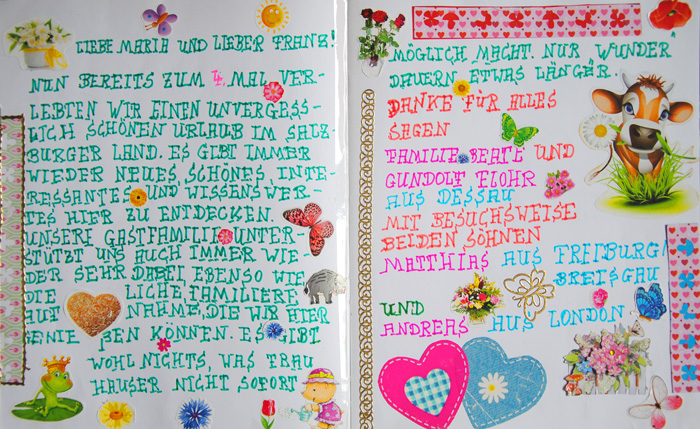 LIEBE MARIA UND LIEBER FRANZ!
NUN BEREITS ZUM 4. MAL VER-
LEBTEN WIR EINEN UNVERGESS-
LICH SCHÖNEN URLAUB IM SALZ-
BURGER LAND. ES GIBT IMMER
WIEDER NEUES, SCHÖNES, INTE-
RESSANTES UND WISSENSWER-
TES HIER ZU ENTDECKEN.
UNSERE GASTFAMILIE UNTER-
STÜTZT UNS AUCH IMMER WIE-
DER SEHR DABEI EBENSO WIE
DIE LICHE, FAMILIERE
AUF NAHME, DIE WIR HIER
GENIE ßEN KÖNNEN. ES GIBT
WOHL NICHTS, WAS TRAU
HAUSER NICHT SOFORT
MÖGLICH MACHT. NUR WUNDER
DAUERN ETWAS LÄNGER.
DANKE FÜR ALLES
SAGEN
FAMILIE BEATE UND
GUNDOLF FLOHR
AUS DESSAU
MIT BESUCHSWEISE
BEIDEN SÖHNEN
MATTHIAS AUS FREIBURG/
BREISGAU
UND
ANDREAS AUS LONDON.